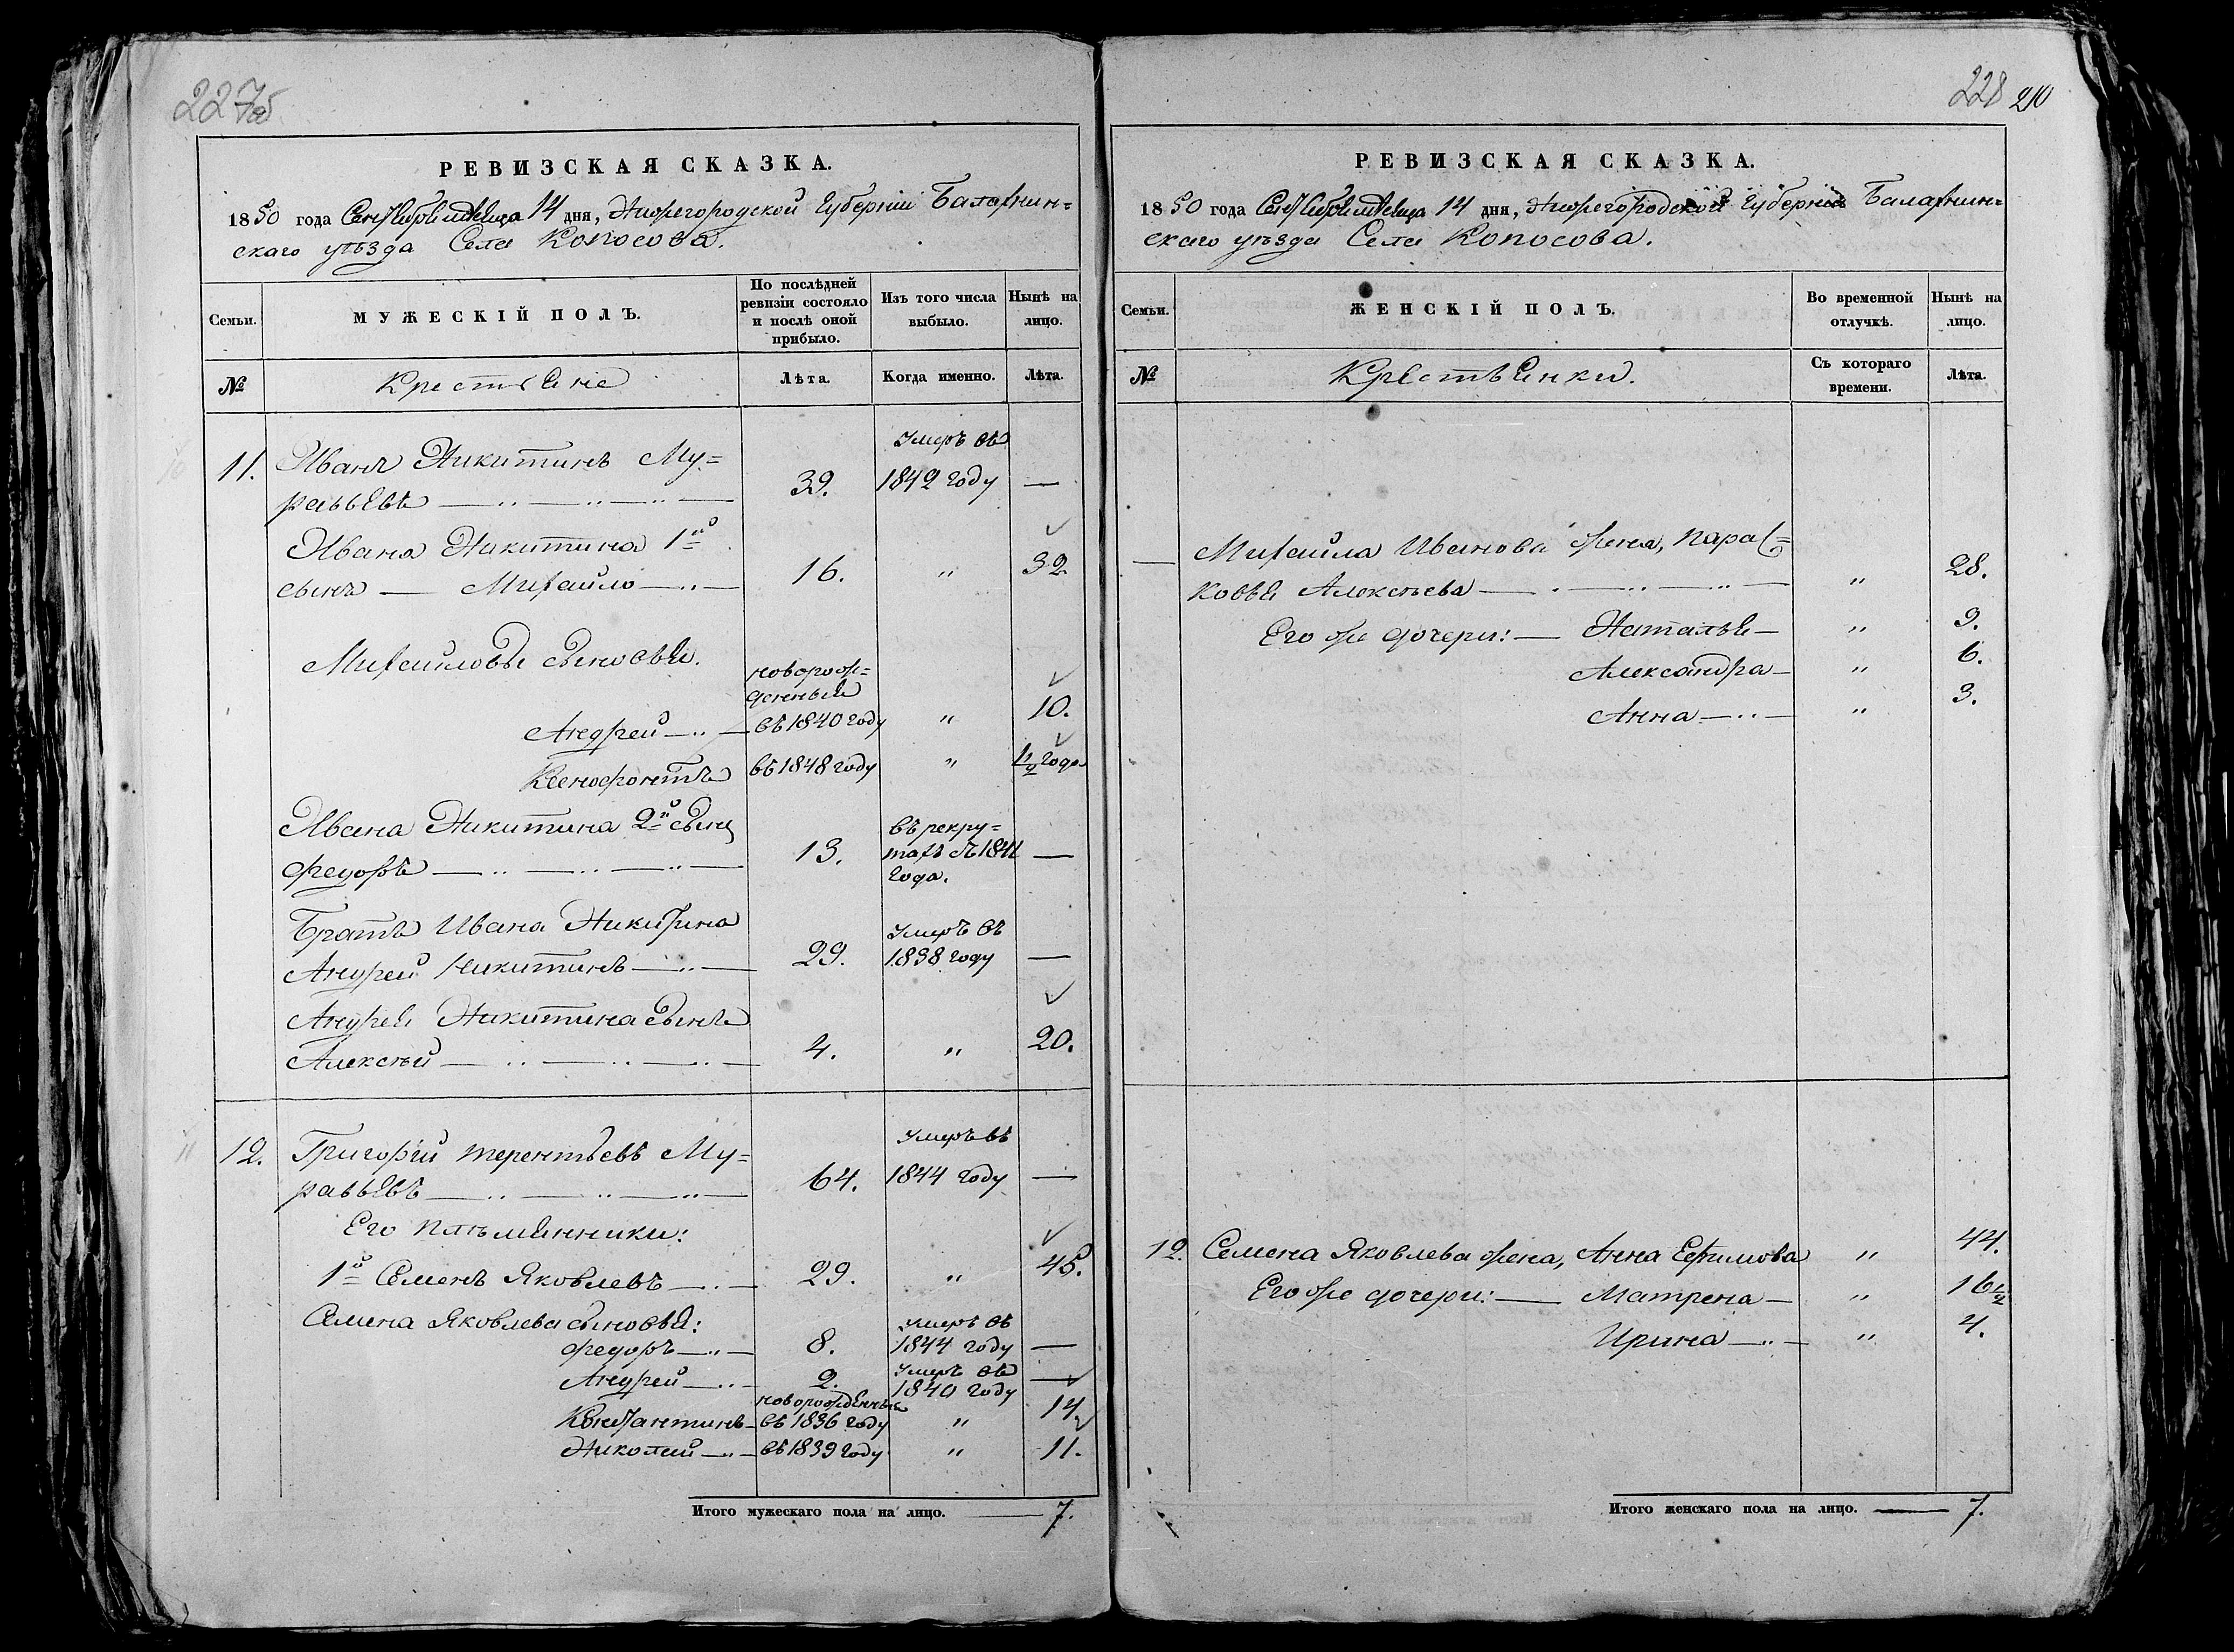 227об
РЕВИЗСКАЯ СКАЗКА.
1850 года Сентября месяца 14 дня, Нижегородской Губернии Балахнин=
скаго уѣзда Села Копосова.
Семьи.
МУЖЕСКІЙ ПОЛЪ.
По послѣдней
ревизіи состояло
и послѣ оной
прибыло.
Изъ того числа
выбыло.
Нынѣ на
лицо.
№
Крестьяне
Лѣта.
Когда именно.
Лѣта.
11. Иванъ Никитинъ Му=
равьевъ 39. Умеръ въ
1842 году —
Ивана Никитина 1й
сынъ — Михайло 16. " 32.
Михайловы сыновья.
Андрей новорож=
денный
въ 1840 году " 10.
Ксенофонтъ въ 1848 году " 1½ года
Ивана Никитина 2й сынъ
Федоръ 13. въ рекру=
тахъ съ 1841
года. —
Братъ Ивана Никитина
Андрей Никитинъ 29. Умеръ въ
1838 году —
Андрея Никитина сынъ
Алексѣй 4. " 20.
12. Григорій Терентьевъ Му=
равьевъ 64. Умеръ въ
1844 году —
Его племянники:
1й Семенъ Яковлевъ 29. " 45.
Семена Яковлева сыновья:
Федоръ 8. Умеръ въ
1844 году —
Андрей 2. Умеръ въ
1840 году —
Константинъ новорожденный
въ 1836 году " 14
Николай въ 1839 году " 11.
Итого мужескаго пола на лицо. — 7.
228 210
РЕВИЗСКАЯ СКАЗКА.
1850 года Сентября месяца 14 дня, Нижегородской Губернии Балахнин=
скаго уѣзда Села Копосова.
Семьи.
ЖЕНСКІЙ ПОЛЪ.
Во временной
отлучкѣ.
Нынѣ на
лицо.
№
Крестьянки.
Съ котораго
времени.
Лѣта.
— Михайла Иванова жена, Парас=
ковья Алексѣева " 28.
Его же дочери: — Наталья — " 9.
Александра — " 6.
Анна " 3.
12. Семена Яковлева жена, Анна Ефимова " 44.
Его же дочери: — Матрена — " 16½
Ирина " 4.
Итого женскаго пола на лицо. — 7.